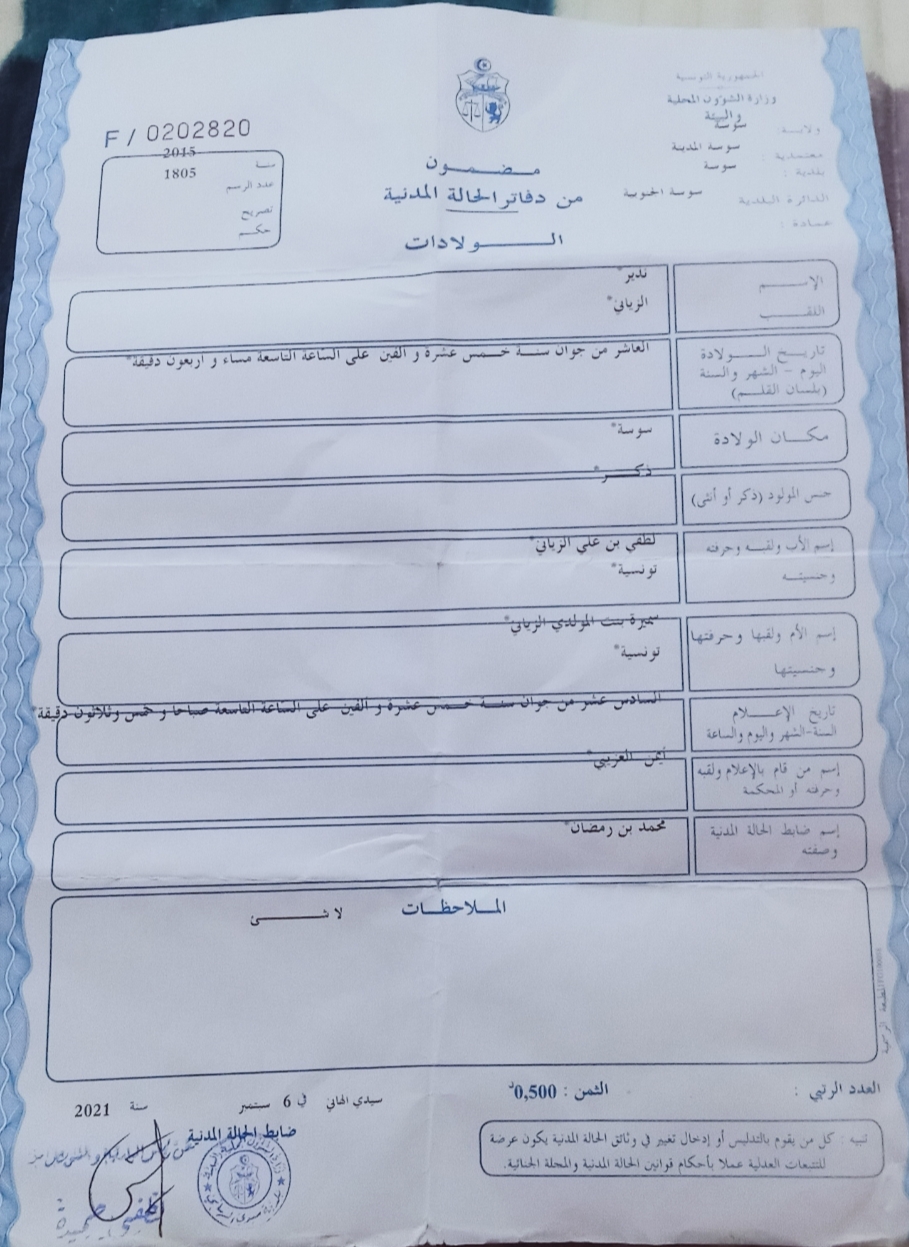 الجمهورية التونسية
وزارة الشؤون المحلية
والبيئة
ولاية : سوسة
معتمدية : سوسة المدينة
بلدية : سوسة
الدائرة البلدية سوسة الجنوبية
عمادة :
F / 0202820
سنة 2015
عدد الرسم 1805
تصريح
حكم
مضمون
من دفاتر الحالة المدنية
الولادات
الإسم نذير*
اللقب الزياني*
تاريخ الولادة العاشر من جوان سنة خمس عشرة و الفين على الساعة التاسعة مساء و اربعون دقيقة*
اليوم - الشهر والسنة
(بلسان القلم)
مكان الولادة سوسة*
جنس المولود (ذكر أو أنثى) ذكر*
إسم الأب ولقبه وحرفته لطفي بن علي الزياني*
وجنسيته تونسية*
إسم الأم ولقبها وحرفتها سميرة بنت المولدي الزياني*
وجنسيتها تونسية*
تاريخ الإعلام السادس عشر من جوان سنة خمس عشرة و الفين على الساعة التاسعة صباحا و خمس وثلاثون دقيقة*
السنة-الشهر واليوم والساعة
إسم من قام بالإعلام ولقبه أيمن العزيبي*
وحرفته أو المحكمة
إسم ضابط الحالة المدنية محمد بن رمضان*
وصفته
الملاحظات
لا شئ
العدد الرتبي :
الثمن : 0,500د
سيدي الهاني في 6 سبتمبر سنة 2021
ضابط الحالة المدنية
تنبيه : كل من يقوم بالتدليس أو إدخال تغيير في وثائق الحالة المدنية يكون عرضة
للتتبعات العدلية عملا بأحكام قوانين الحالة المدنية والمجلة الجنائية.